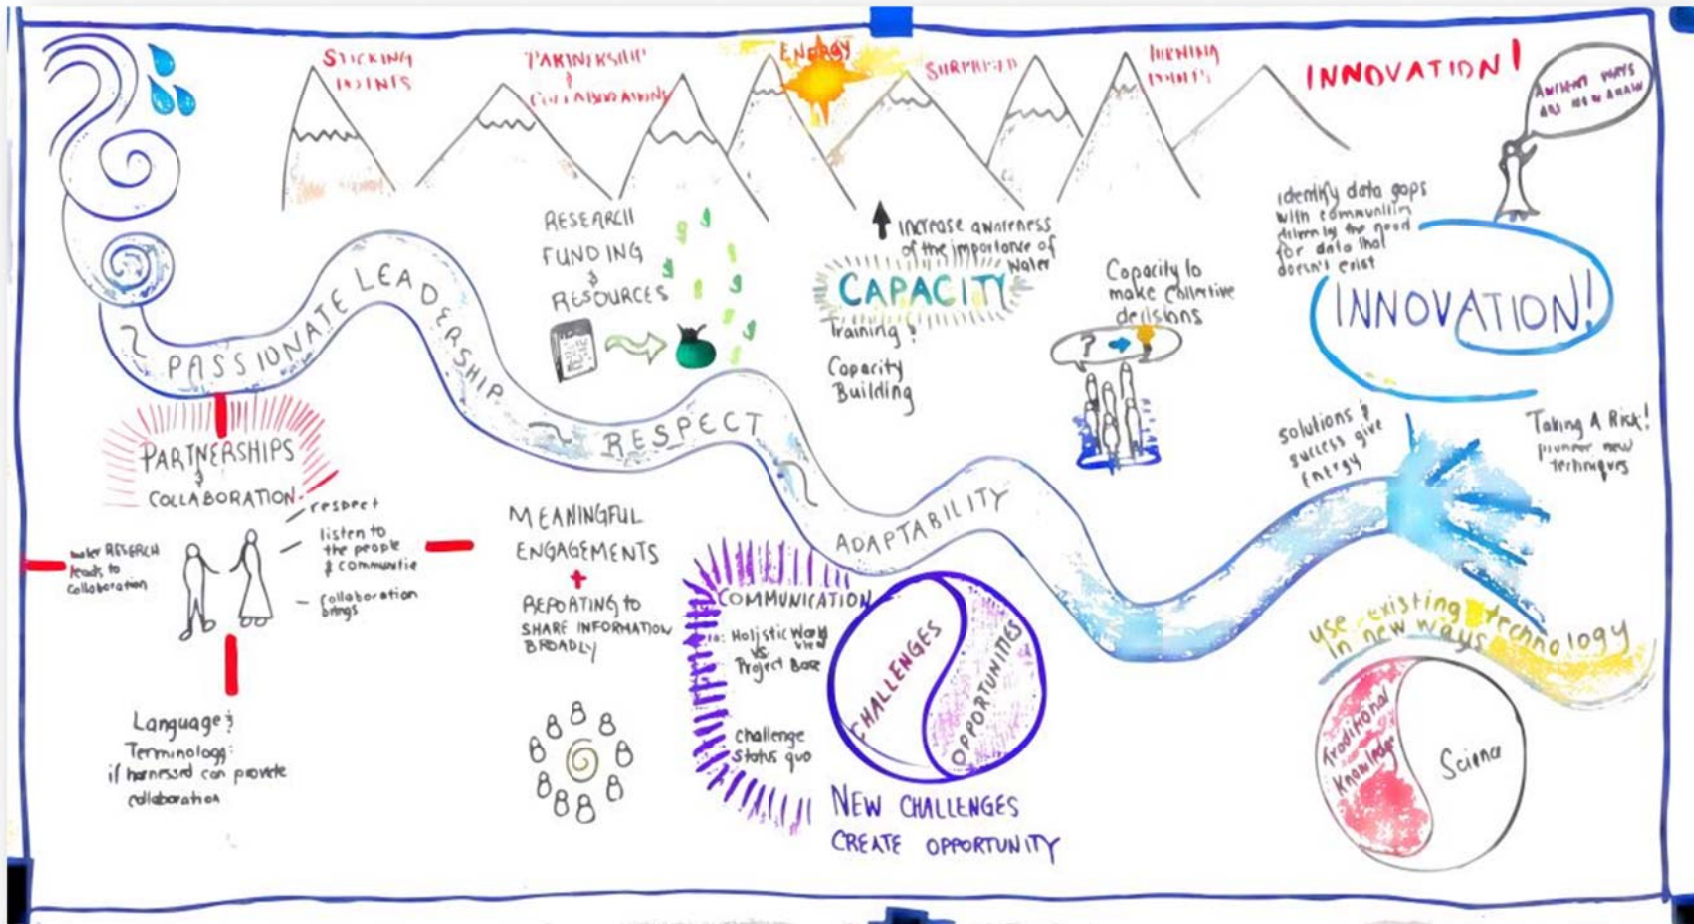 STICKING
POINTS
PARTNERSHIP
&
COLLABORATIONS
ENERGY
SURPRISED
TURNING
POINTS
INNOVATION!
ANCIENT WAYS
ARE NOW AGAIN
RESEARCH
FUNDING
&
RESOURCES
Increase awareness
of the importance of
Water
CAPACITY
Training &
Capacity
Building
Capacity to
make collective
decisions
?
identify data gaps
with communities
driven by the need
for data that
doesn't exist
INNOVATION!
PASSIONATE LEADERSHIP
RESPECT
ADAPTABILITY
solutions &
success give
Energy
Taking A Risk!
pioneer new
techniques
PARTNERSHIPS
&
COLLABORATION
respect
listen to
the people
& communitie
collaboration
brings
water RESEARCH
leads to
collaboration
Language &
Terminology:
if harnessed can provide
collaboration
MEANINGFUL
ENGAGEMENTS
+
REPORTING to
SHARE INFORMATION
BROADLY
COMMUNICATION
Holistic World
view
vs
Project Base
challenge
status quo
CHALLENGES
OPPORTUNITIES
NEW CHALLENGES
CREATE OPPORTUNITY
use existing technology
in new ways
Traditional
Knowledge
Science